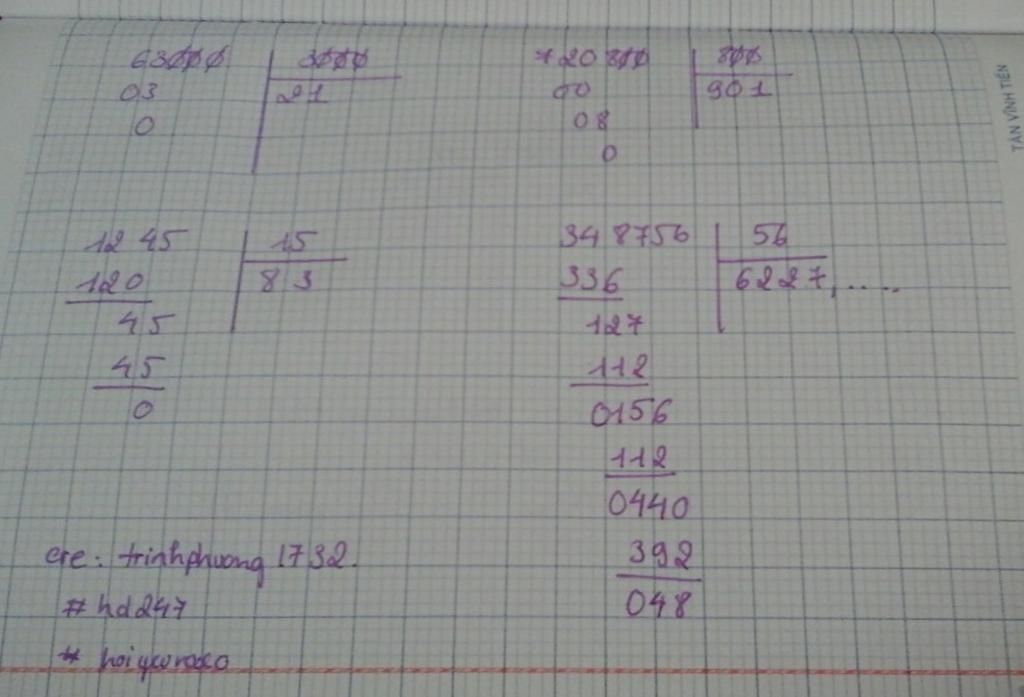 63000 3000
03 21
0
720800 800
00 901
08
0
1245 15
120 83
45
45
0
348756 56
336 6227,.....
127
112
0156
112
0440
392
048
cre: trinhphuong1732.
#hd247
TÂN VĨNH TIẾN